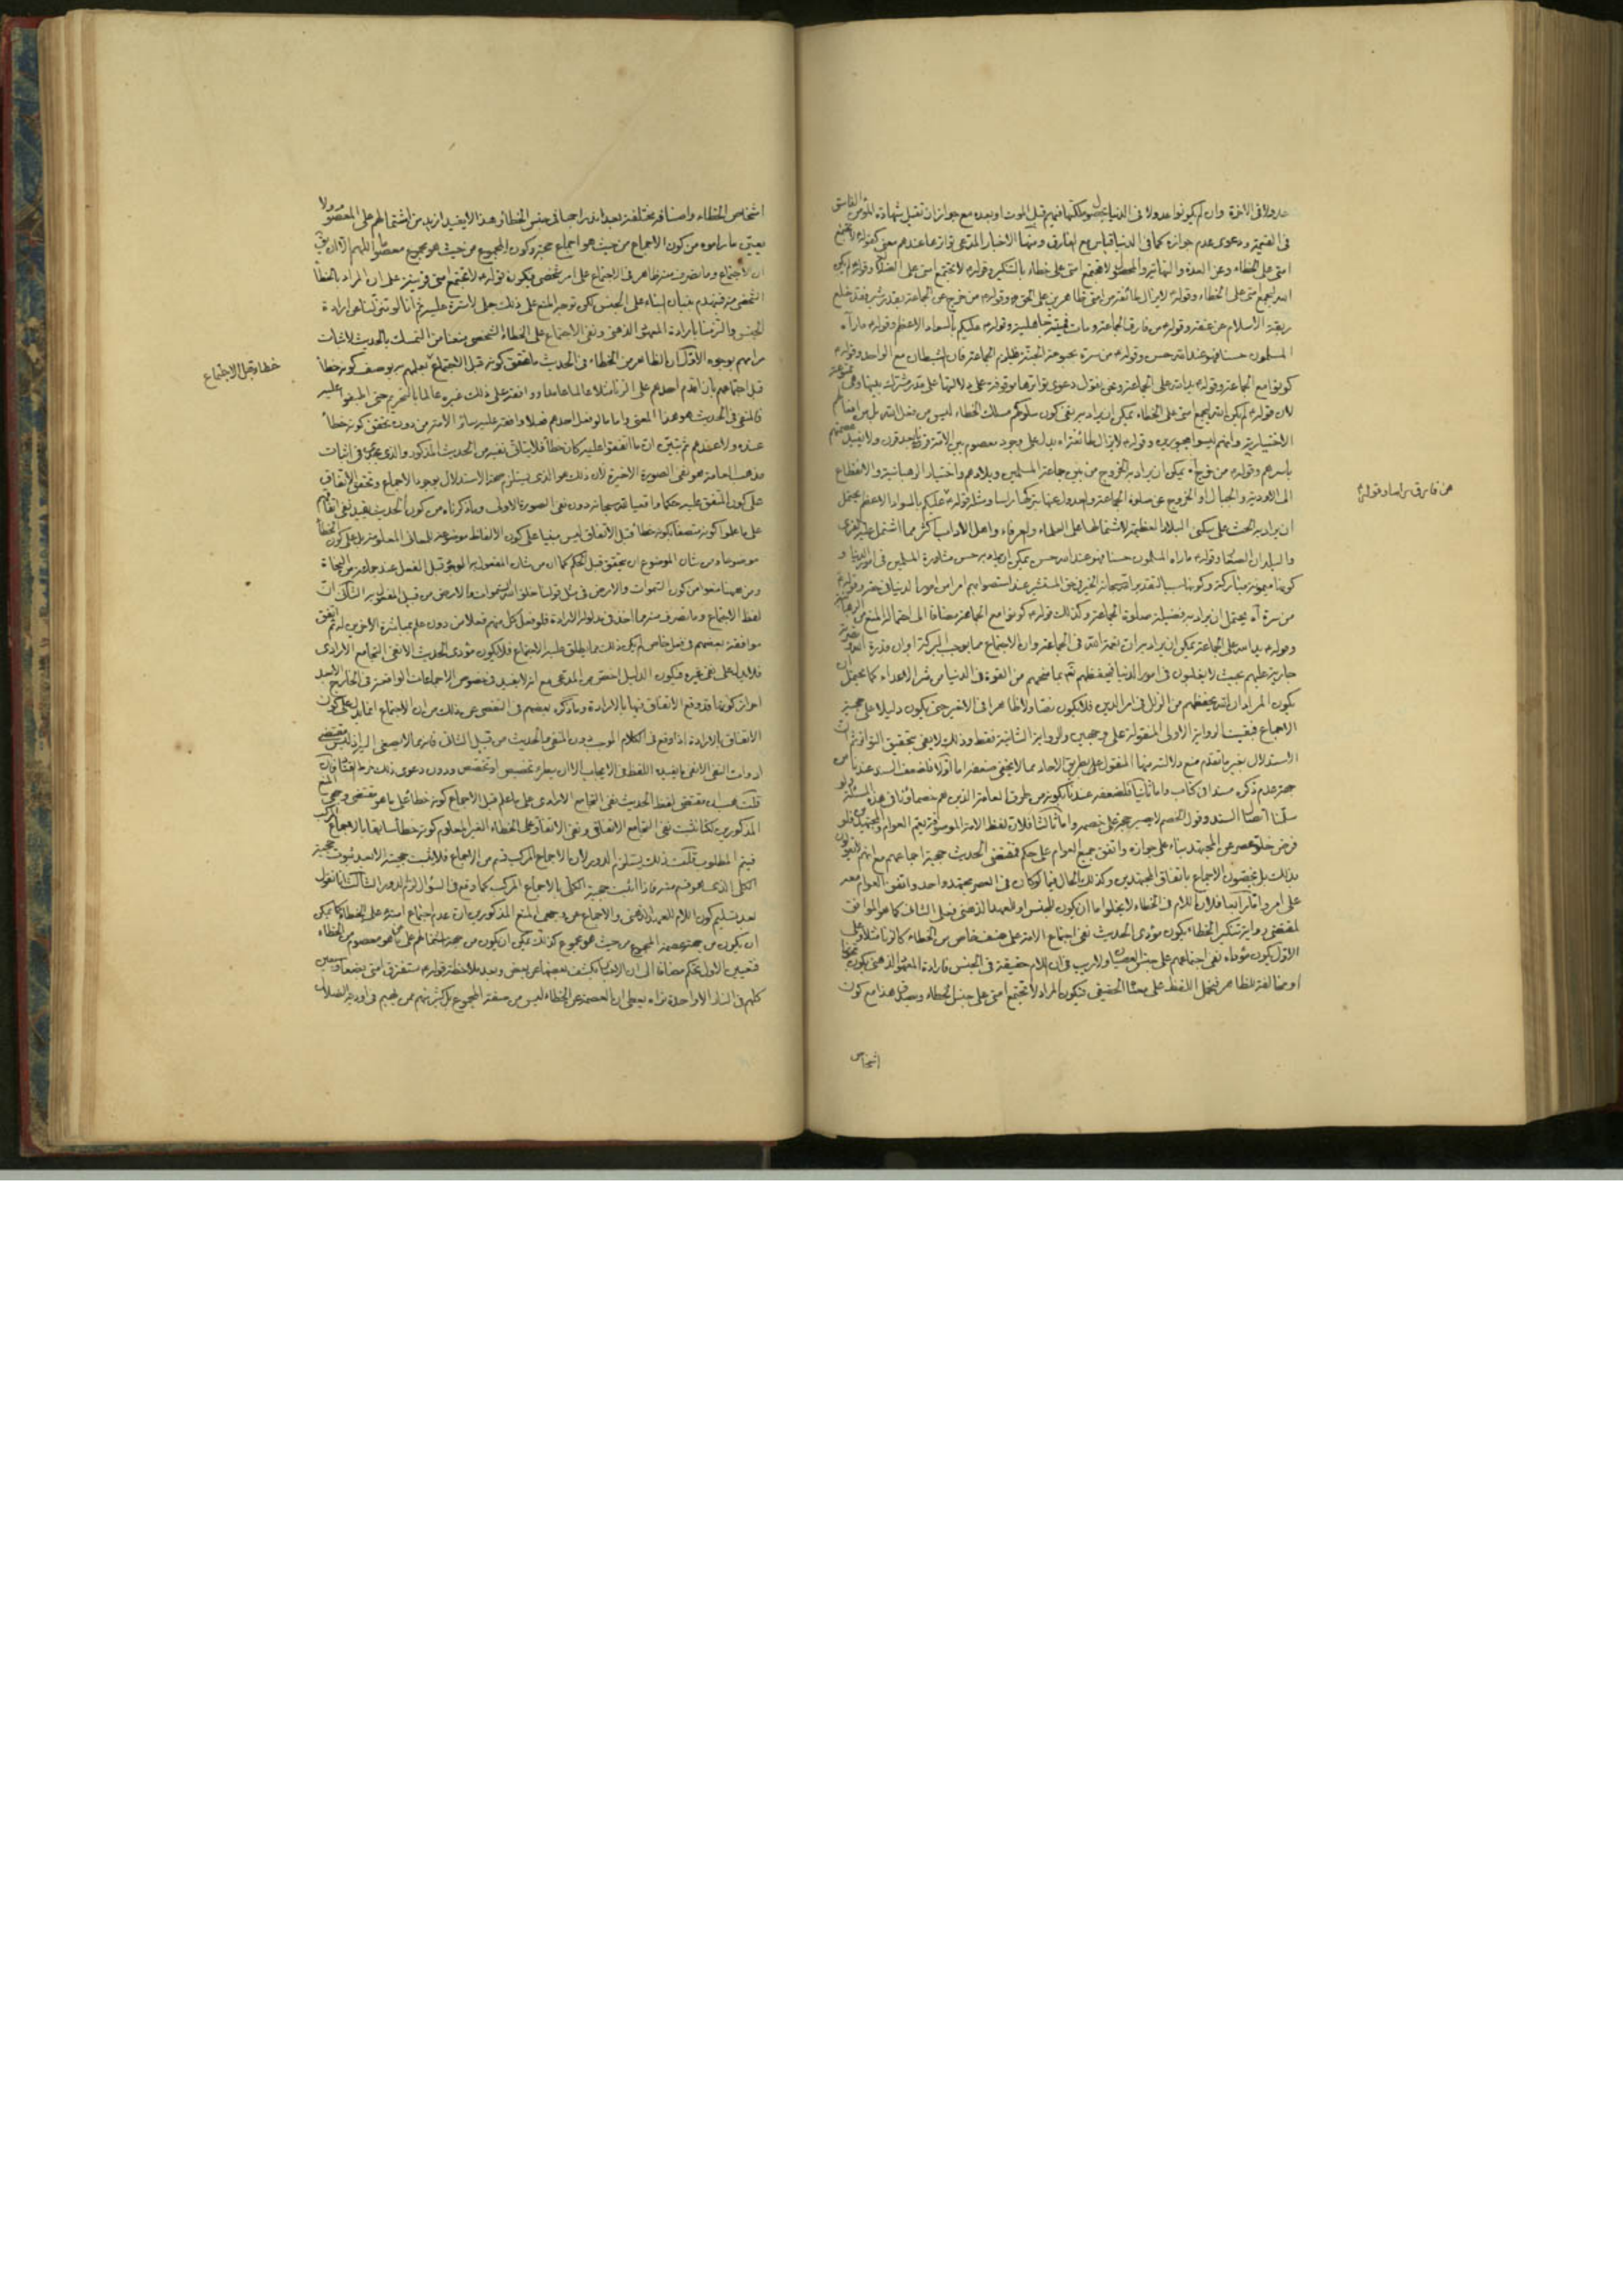 عدولا فى الاخرة وان لم يكونوا عدولا فى الدنيا قبل الموت او بعده مع جواز ان تقبل شهادة المؤمن الفاسق
فى القيمة ودعوى عدم جوازه كما فى الدنيا قياس مع الفارق ومنها الاخبار المدعى تواترها عندهم معنى كقوله لا تجتمع
امتى على الخطاء وعن العدة والنهاية والمحصول لا تجتمع امتى على خطاء بالتنكير وقوله لا تجتمع امتى على الضلالة وقوله لم يكن
الله ليجمع امتى على الخطاء وقوله لا يزال طائفة من امتى ظاهرين على الحق وقوله من خرج عن الجماعة بقدر شبر فقد خلع
ربقة الاسلام عن عنقه وقوله من فارق الجماعة ومات فميتته جاهلية وقوله عليكم بالسواد الاعظم وقوله ما رآه
المسلمون حسنا فهو عند الله حسن وقوله من سره بحبوحة الجنة فليلزم الجماعة فان الشيطان مع الواحد وقوله
كونوا مع الجماعة وقوله يد الله على الجماعة ونحن نقول دعوى تواترها موقوفة على دلالتها على قدر مشترك بينها وهى
لان قوله لم يكن الله ليجمع امتى على الخطاء يمكن ان يراد به نفى كون سلوكهم مسلك الخطاء ليس من فعل الله بل من افعالهم
الاختيارية وانهم ليسوا مجبورين وقوله لا يزال طائفة اه يدل على وجود معصوم بين الامة قرنا بعد قرن ولا يفيد عصمتهم
باسرهم وقوله من خرج آه يمكن ان يراد به الخروج من بين جماعة المسلمين وبلادهم واختيار الرهبانية والانقطاع
الى الاودية والجبال او الخروج عن صلوة الجماعة والعدول عنها بتركها راسا ومثله قوله عليكم بالسواد الاعظم يحتمل
من فارق براسا وقوله
ان يراد به الحث على سكنى البلاد العظيمة لاشتمالها على العلماء والعرفاء واهل الاداب اكثر مما اشتمل عليه القرى
والبلدان الصغار وقوله ما رآه المسلمون حسنا فهو عند الله حسن يمكن ان يراد به حسن مشاورة المسلمين فى امور الدنيا و
من سره آه يحتمل ان يراد به فضيلة صلوة الجماعة وكذلك قوله كونوا مع الجماعة مضافا الى احتمال المنع من الرهبانية
وقوله يد الله على الجماعة يمكن ان يراد به ان نعمة الله فى الجماعة وان الاجتماع مما يوجب البركة او ان قدرة الله
جارية عليهم بحيث لا يغلبون فى امور الدنيا فيحفظهم الله بما منحهم من القوة فى الدنيا من شر الاعداء كما يحتمل ان
يكون المراد ان الله يحفظهم من الزلل فى امر الدين فلا يكون نصا ولا ظاهرا فى الاخير حتى يكون دليلا على حجية
الاجماع فبقيت الرواية الاولى المنقولة على وجهين والرواية الثانية فقط وذلك لا يفى بتحقيق التواتر ثم ان
الاستدلال بغير ما تقدم منع دلالته منها المنقول على طريق الاحاد مما لا يخفى ضعفه اما اولا فلضعف السند عندنا من
جهة عدم ذكره مسندا فى كتاب واما ثانيا فلضعفه عندنا بكونه من طرق العامة الذين هم خصماؤنا فى هذه المسئلة ولو
سلمنا اتصال السند وقول الخصم لا يصير حجة على خصمه واما ثالثا فلان لفظ الامة الموصوفة يعم العوام والمجتهدين فلو
فرض خلو عصر عن المجتهد بناء على جوازه واتفق جميع العوام على حكم فمقتضى الحديث حجية اجماعهم مع انهم لا يقولون
بذلك بل يخصون الاجماع باتفاق المجتهدين وكذلك الحال فيما لو كان فى العصر مجتهد واحد واتفق العوام معه
على امر واما رابعا فلان اللام فى الخطاء لا يخلو اما ان يكون للجنس او للعهد الذهنى فعلى الثانى كما هو الموافق
لمقتضى رواية تنكير الخطاء يكون مؤدى الحديث نفى اجتماع الامة على صنف خاص من الخطاء كالزنا مثلا وعلى
الاول يكون مؤداه نفى اجتماعهم على جنس العصيان ولا ريب فى ان اللام حقيقة فى الجنس فارادة المعهود الذهنى يكون تجوزا
او مخالفة للظاهر فيحمل اللفظ على معناه الحقيقى فيكون المراد لا تجتمع امتى على جنس الخطاء ويصدق هذا مع كون
اشخاص
اشخاص الخطاء واصنافه مختلفة بعد اندراجها فى جنس الخطاء وهذا لا يفيد ازيد من اشتمالهم على المعصوم ولا
يعين ما راموه من كون الاجماع من حيث هو اجماع حجة وكون المجموع من حيث هو مجموع معصوما اللهم الا ان يق
ان الاجتماع وما تصرف منه ظاهر فى الاجتماع على امر شخصى فيكون قوله لا تجتمع امتى قرينة على ان المراد بالخطأ
الجنس والتزمنا بارادة المعهود الذهنى ونفى الاجتماع على الخطاء الشخصى منعنا من التمسك بالحديث لاثبات
مرامهم بوجوه الاول ان الظاهر من الخطاء فى الحديث ما تحقق كونه قبل الاجتماع بعلمهم به بوصف كونه خطأ
خطاء قبل الاجتماع
قبل اجتماعهم بان اقدم احدهم على الزنا مثلا عالما عامدا ووافقه على ذلك غيره عالما بالتحريم حتى اطبقوا عليه
فالمنفى فى الحديث هو هذا المعنى واما ما لو فعل احدهم فعلا ووافقه عليه سائر الامة من دون تحقق كونه خطأ
عنده ولا عندهم ثم تبين ان ما اتفقوا عليه كان خطأ فلا يتاتى نفيه من الحديث المذكور والذى يجدى فى اثبات
مذهب العامة هو نفى الصورة الاخيرة لان ذلك هو الذى يستلزم صحة الاستدلال بوجود الاجماع وتحقق الاتفاق
على كون المتفق عليه حكما واقعيا لله سبحانه دون نفى الصورة الاولى وما ذكرناه من كون الحديث يفيد نفى اتفاقهم
على ما علموا كونه متصفا بكونه خطأ قبل الاتفاق ليس مبنيا على كون الالفاظ موضوعة للمعانى المعلومة بل على كون الخطأ
موضوعا ومن شان الموضوع ان يتحقق قبل الحكم كما ان من شان المفعول به الوجود قبل الفعل عند جماعة من النحاة
ومن ههنا منعوا من كون السموات والارض فى مثل قولنا خلق الله السموات والارض من قبيل المفعول به الثانى ان
لفظ الاجتماع وما تصرف منه مما اخذ فى مدلوله الارادة فلو فعل كل منهم فعلا من دون علم بمباشرة الاخرين له ثم اتفق
موافقة بعضهم فى فعل خاص لم يكن ذلك مما يطلق عليه الاجتماع فلا يكون مؤدى الحديث الا نفى التجامع الارادى
فلا يدل على نفى غيره فيكون الدليل اخص من المدعى مع انه لا يفيد فى خصوص الاجماعات الواقعة فى الخارج الا بعد
احراز كونها قد وقع الاتفاق فيها بالارادة وما ذكره بعضهم فى التفصى عن ذلك من ان الاجتماع انما يدل على كون
الاتفاق بالارادة اذا وقع فى الكلام الموجب دون المنفى
قلت هب ان مقتضى لفظ الحديث نفى التجامع الارادى على ما علم قبل الاجماع كونه خطأ على ما هو مقتضى وجهى المنع
المذكورين لكنا نثبت نفى التجامع الاتفاقى ونفى الاتفاق على الخطاء الغير المعلوم كونه خطأ سابقا بالاجماع المركب
فيتم المطلوب قلت ذلك يستلزم الدور لان الاجماع المركب قسم من الاجماع فلا يثبت حجيته الا بعد ثبوت حجية
الكلى الذى هو قسم منه فاذا اثبت حجية الكلى بالاجماع المركب كما وقع فى السؤال لزم الدور الثالث انا نقول
بعد تسليم كون اللام للعهد الذهنى والاغماض عن وجهى المنع المذكورين ان عدم اجتماع امته على الخطاء كما يمكن
ان يكون من جهة عصمة المجموع من حيث هو مجموع كذلك يمكن ان يكون من جهة اشتمالهم على ما هو معصوم من الخطاء
فتعيين الاول تحكم مضافا الى ان الاخبار يكشف بعضها عن بعض وبعد ملاحظة قوله ستفترق امتى بضعا وسبعين
كلهم فى النار الا واحدة تراه يعطى ان العصمة عن الخطاء ليس من صفة المجموع بل اكثرهم ممن يهيم فى اودية الضلال